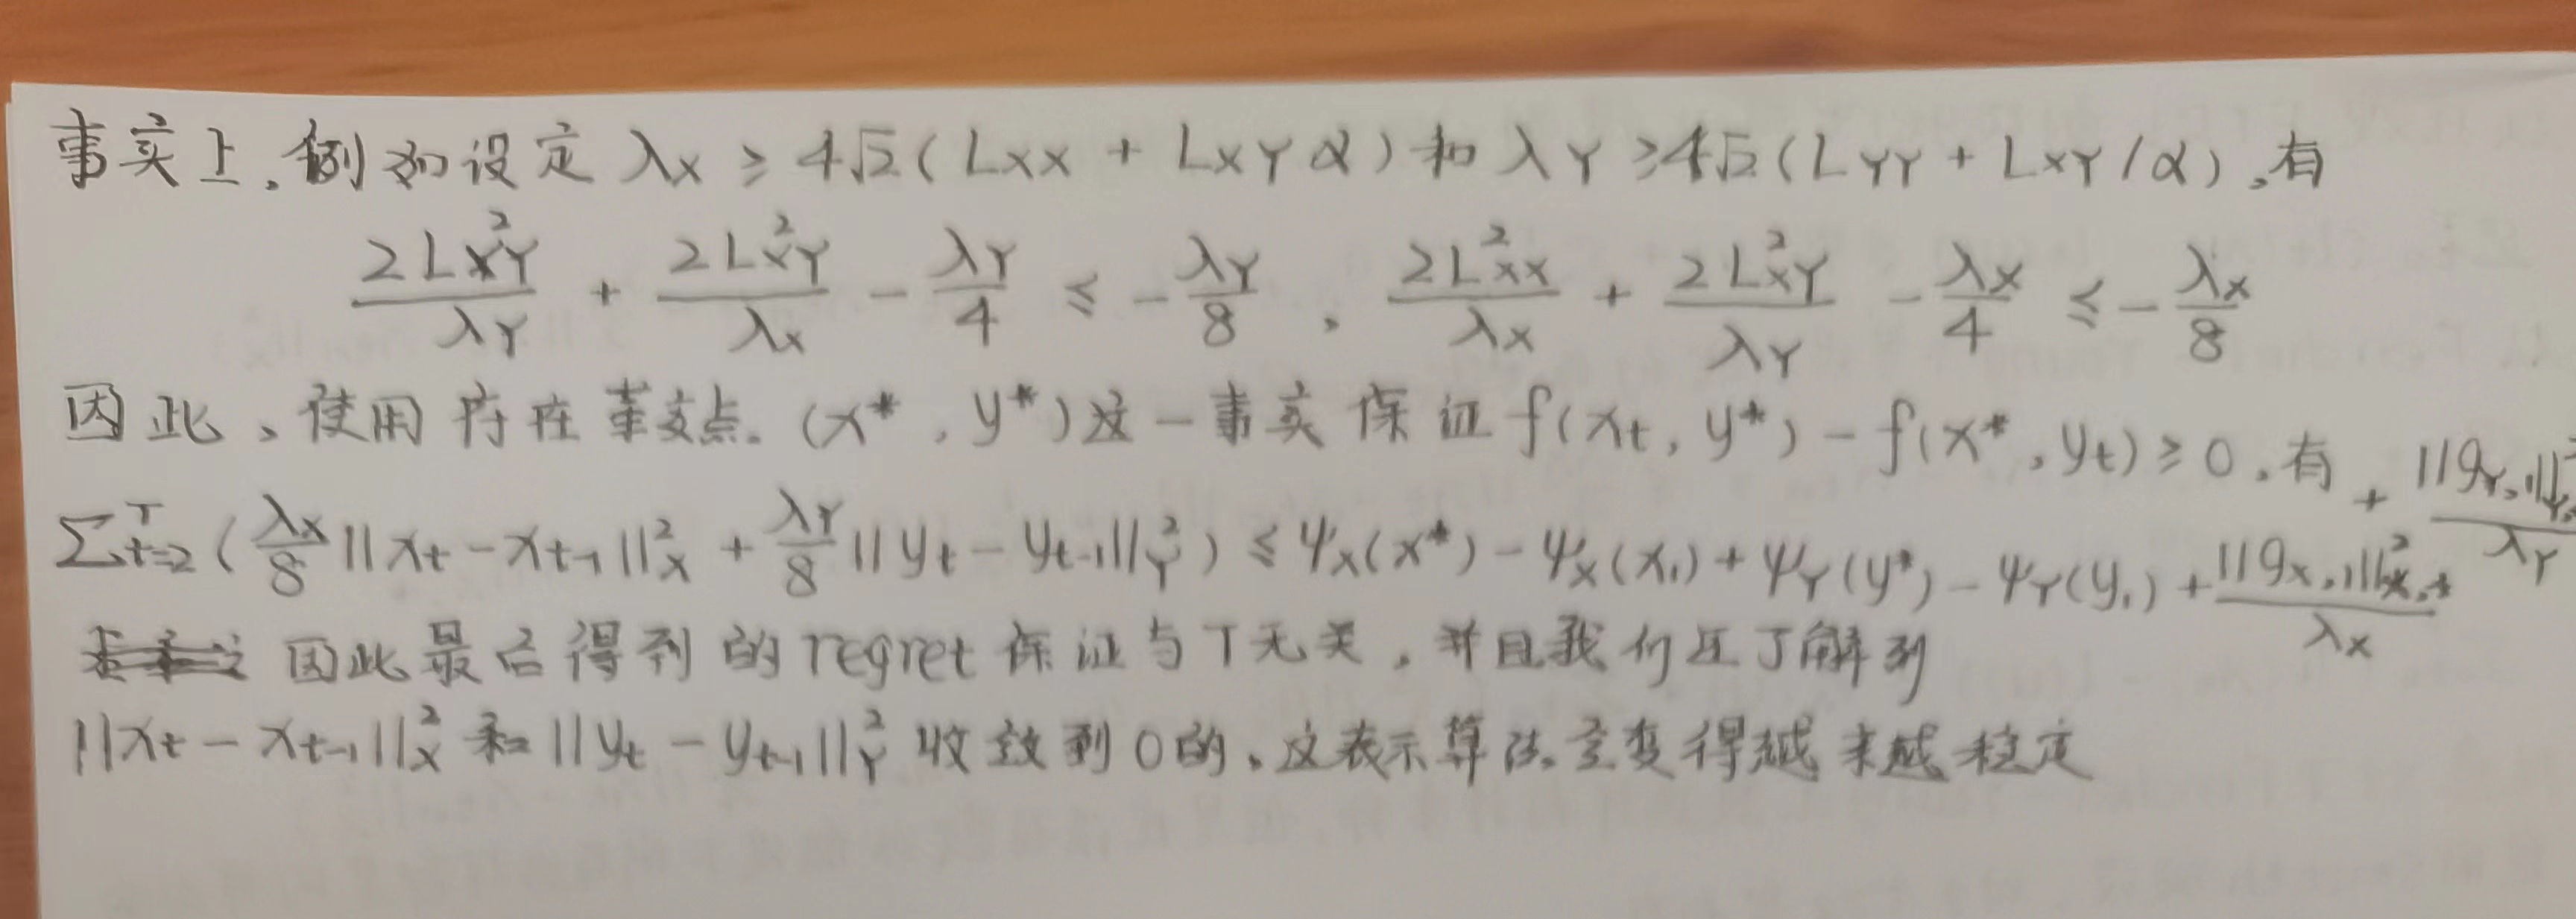 事实上,例如设定 λ_X ≥ 4√2 ( L_XX + L_XY α ) 和 λ_Y ≥ 4√2 ( L_YY + L_XY / α ),有
2L_XY^2 / λ_Y + 2L_XY^2 / λ_X - λ_Y / 4 ≤ - λ_Y / 8 , 2L_XX^2 / λ_X + 2L_XY^2 / λ_Y - λ_X / 4 ≤ - λ_X / 8
因此、使用存在鞍点 (x* , y*) 这一事实保证 f(x_t, y*) - f(x*, y_t) ≥ 0,有
∑_{t=2}^T ( λ_X / 8 ||x_t - x_{t-1}||_X^2 + λ_Y / 8 ||y_t - y_{t-1}||_Y^2 ) ≤ ψ_X(x*) - ψ_X(x_1) + ψ_Y(y*) - ψ_Y(y_1) + ||g_{X,1}||_{X,*}^2 / λ_X + ||g_{Y,1}||_{Y,}^2 / λ_Y
因此最后得到的 regret 保证与 T 无关,并且我们还了解到
||x_t - x_{t-1}||_X^2 和 ||y_t - y_{t-1}||_Y^2 收敛到 0 的,这表示算法会变得越来越稳定